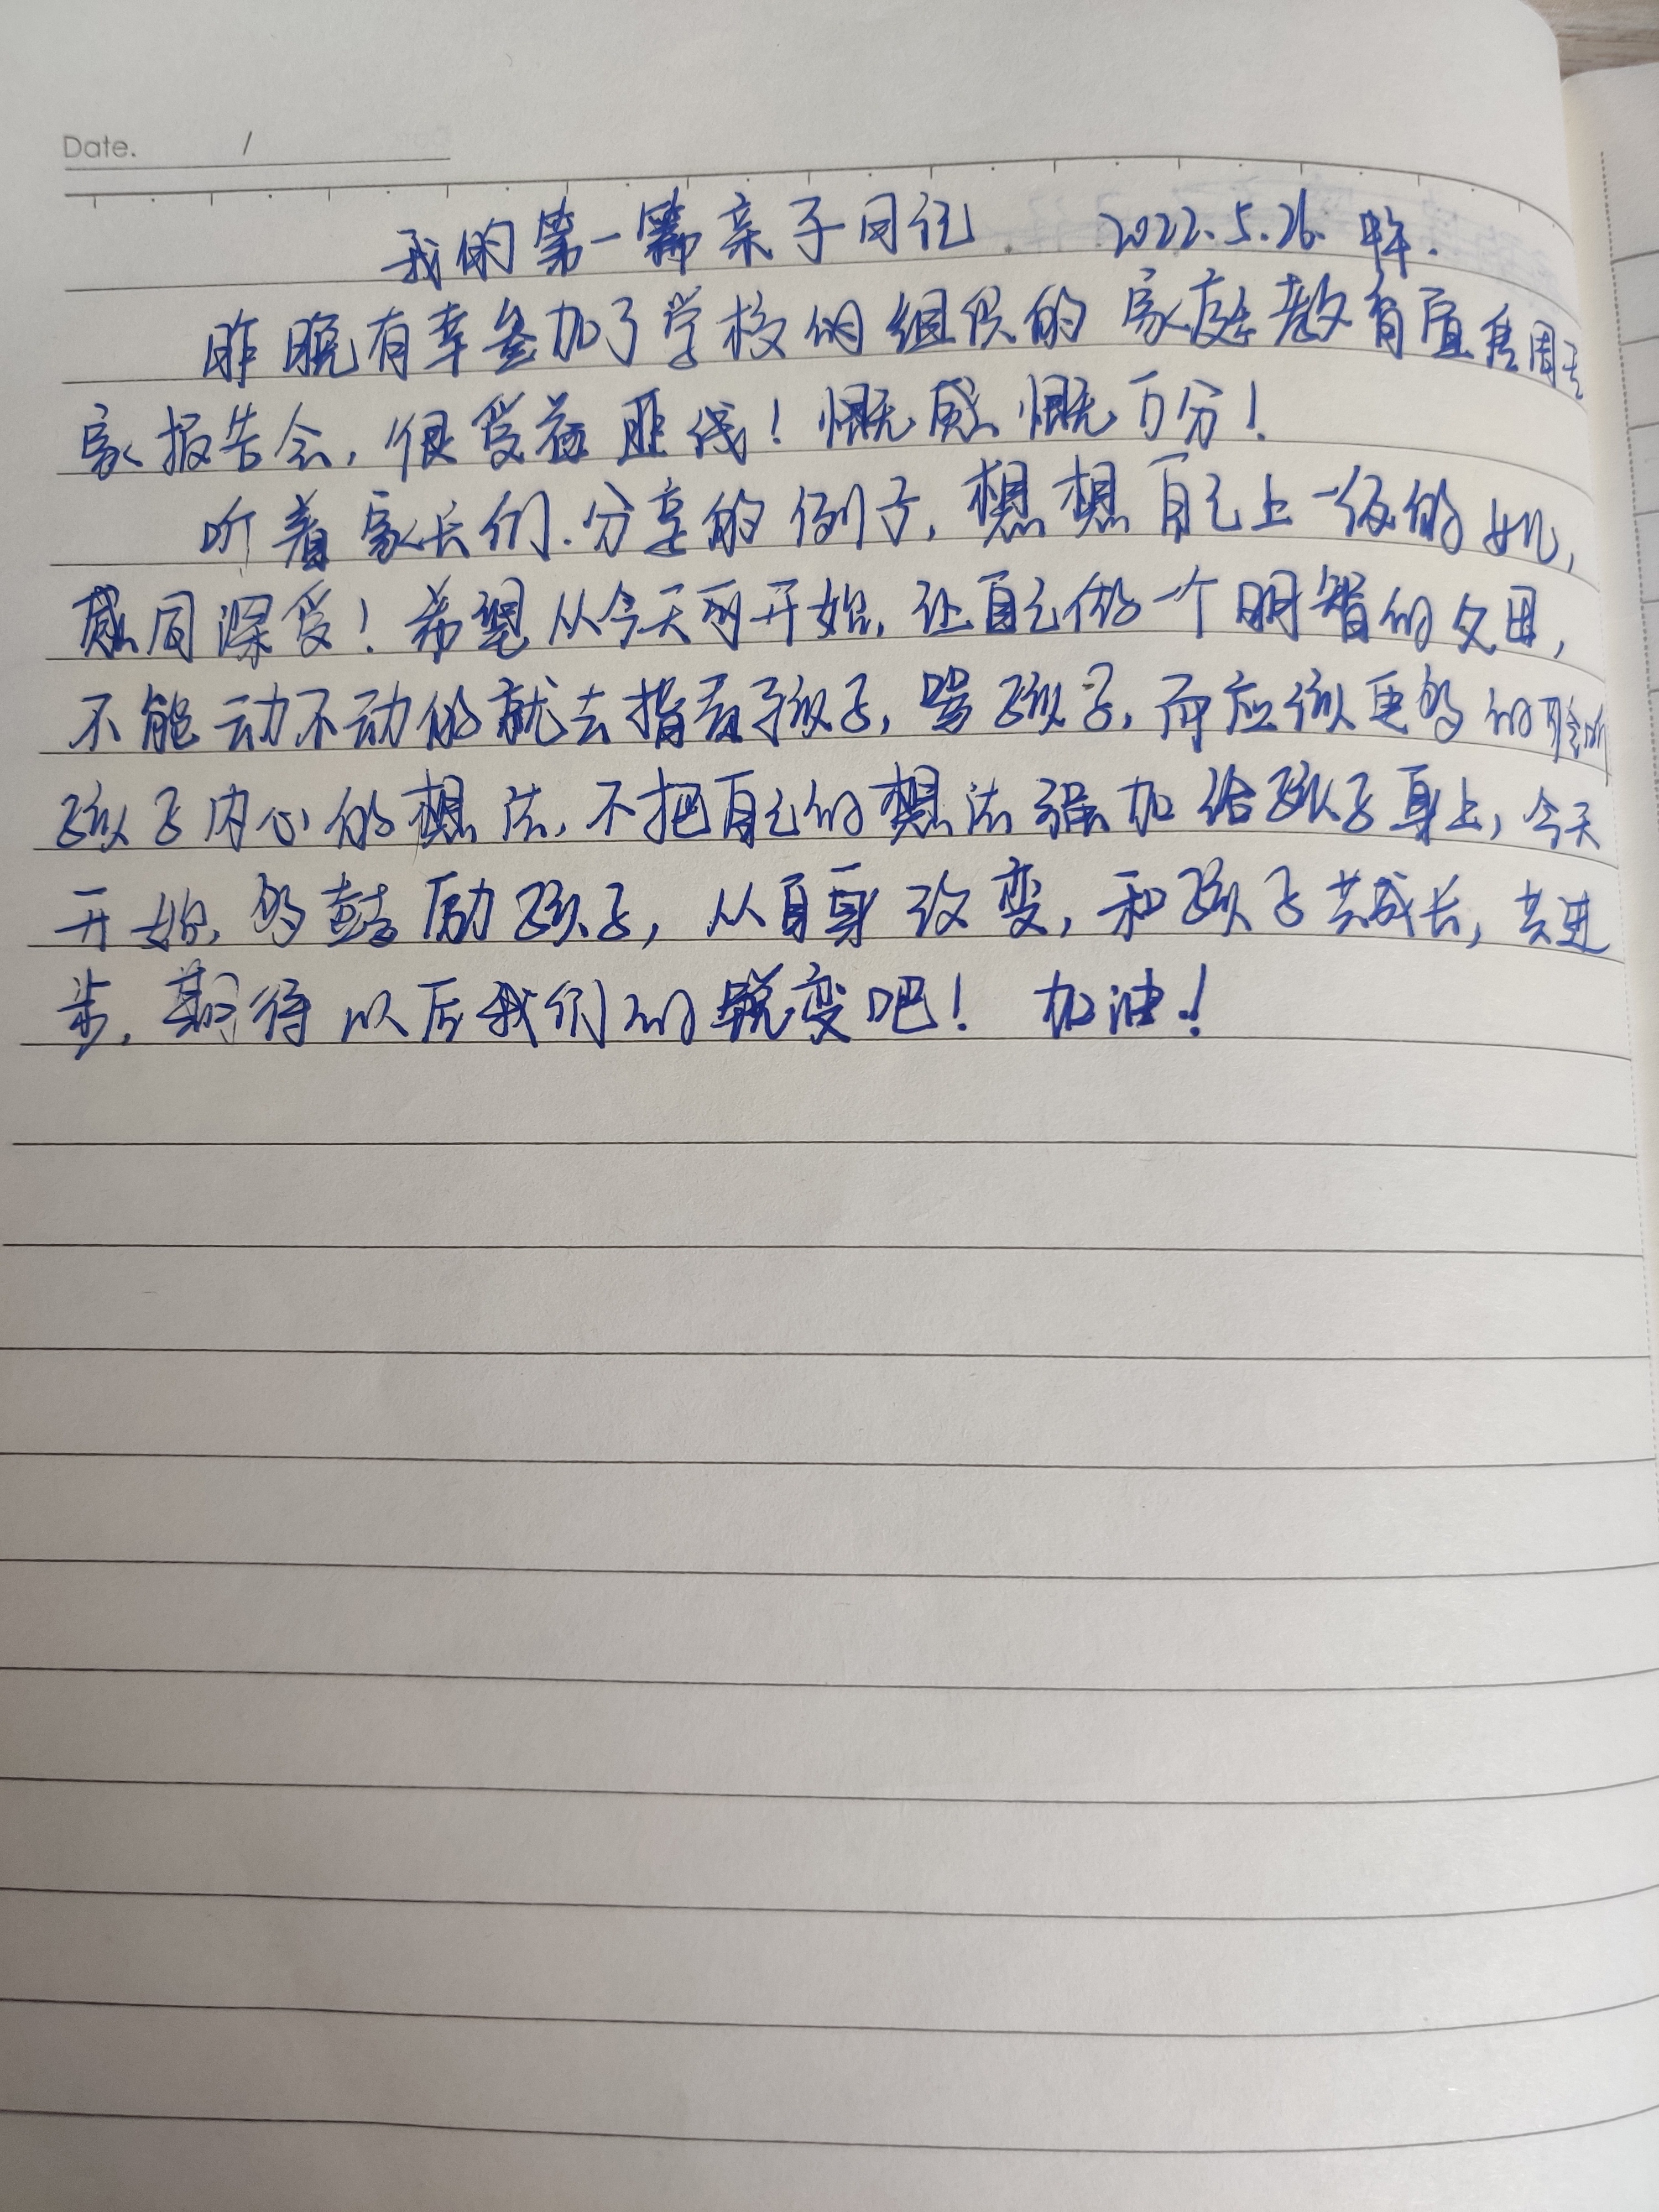 Date. /
我的第一篇亲子日记 2022.5.26. 中午.
昨晚有幸参加了学校的组织的家庭教育直播周
家报告会,很受益匪浅!慨感慨万分!
听着家长们.分享的例子,想想自己上一级的女儿,
感同深受!希望从今天开始,让自己做一个明智的父母,
不能动不动的就去指责孩子,骂孩子,而应该更多的聆听
孩子内心的想法,不把自己的想法强加给孩子身上,今天
开始,多鼓励孩子,从自身改变,和孩子共成长,共进
步,期待以后我们的蜕变吧!加油!